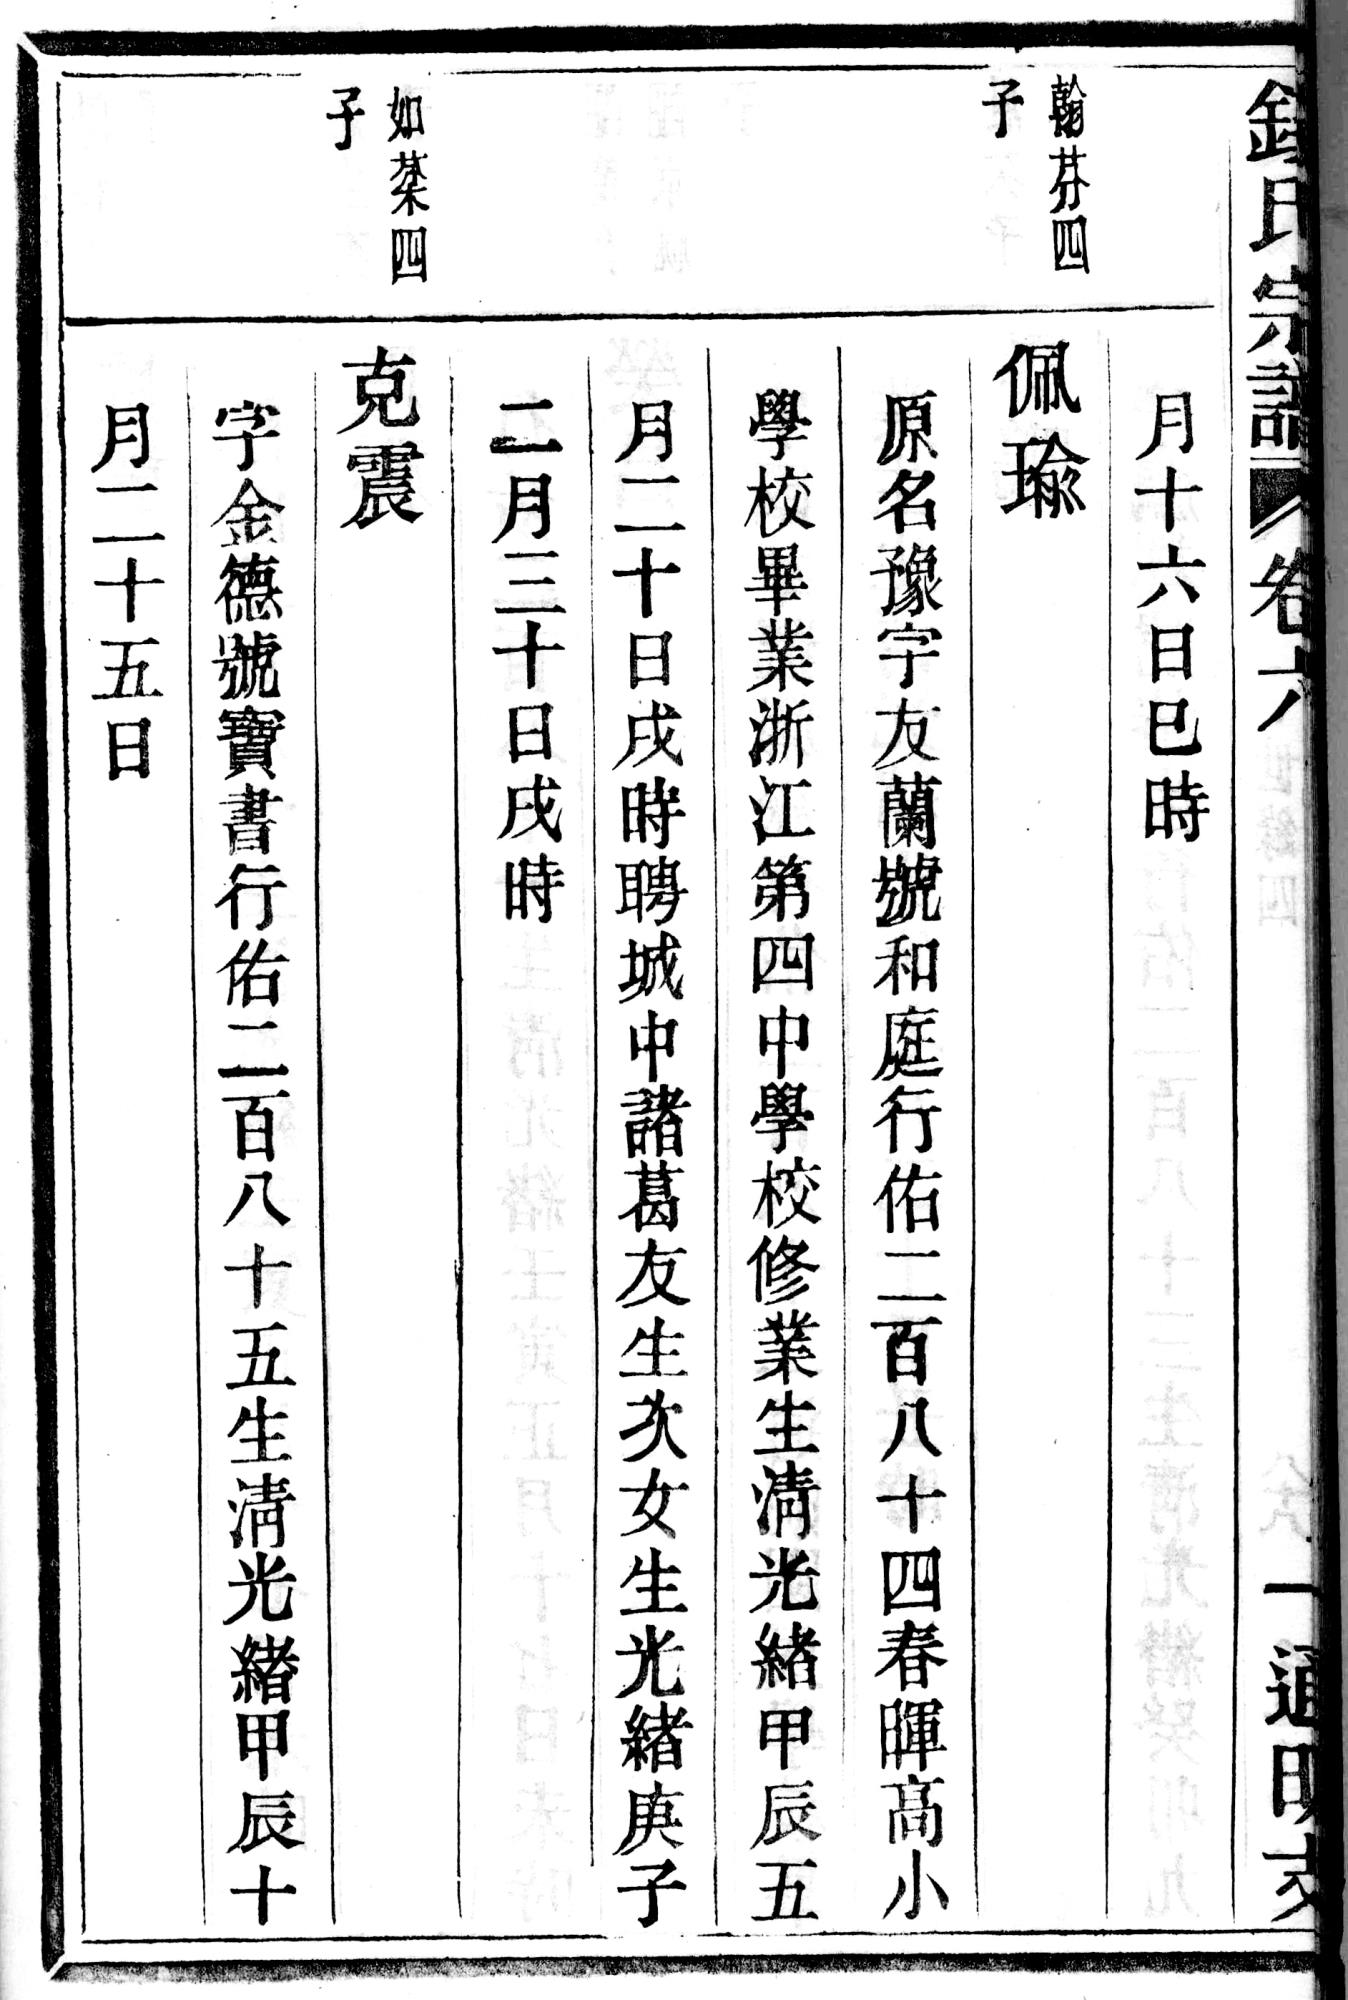 氏宗譜 卷六 一 通明支
月十六日巳時
翰芬四
子
佩瑜
原名豫字友蘭號和庭行佑二百八十四春暉高小
學校畢業浙江第四中學校修業生淸光緒甲辰五
月二十日戌時聘城中諸葛友生次女生光緒庚子
二月三十日戌時
如棻四
子
克震
字金德號寶書行佑二百八十五生淸光緒甲辰十
月二十五日